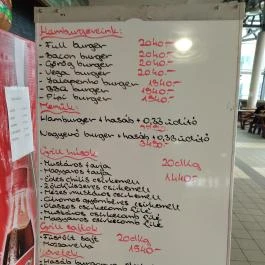 Hamburgereink:
- Full burger 2040.-
- Bacon burger 2040.-
- Görög burger 2040.-
- Vega burger 2040.-
- Jalapenho burger 1940.-
- BBQ burger 1940.-
- Pipi burger 1940.-
Menük:
Hamburger + hasáb + 0,33 üdítő
Nagyevő burger + hasáb + 0,33 üdítő
3490.-
Grill húsok
- Mustáros tarja 20dkg
- Magyaros tarja
- Édes chilis csirkemell 1440.-
- Zöldfűszeres csirkemell
- Mézes mustáros csirkemell
- Citromos gyömbéres csirkemell
- Mustáros csirkecomb filé
- Magyaros csirkecomb filé
Grill sajtok
- Füstölt sajt 20dkg
- Mozzarella 1940.-
Köretek
- Hasáb burgonya